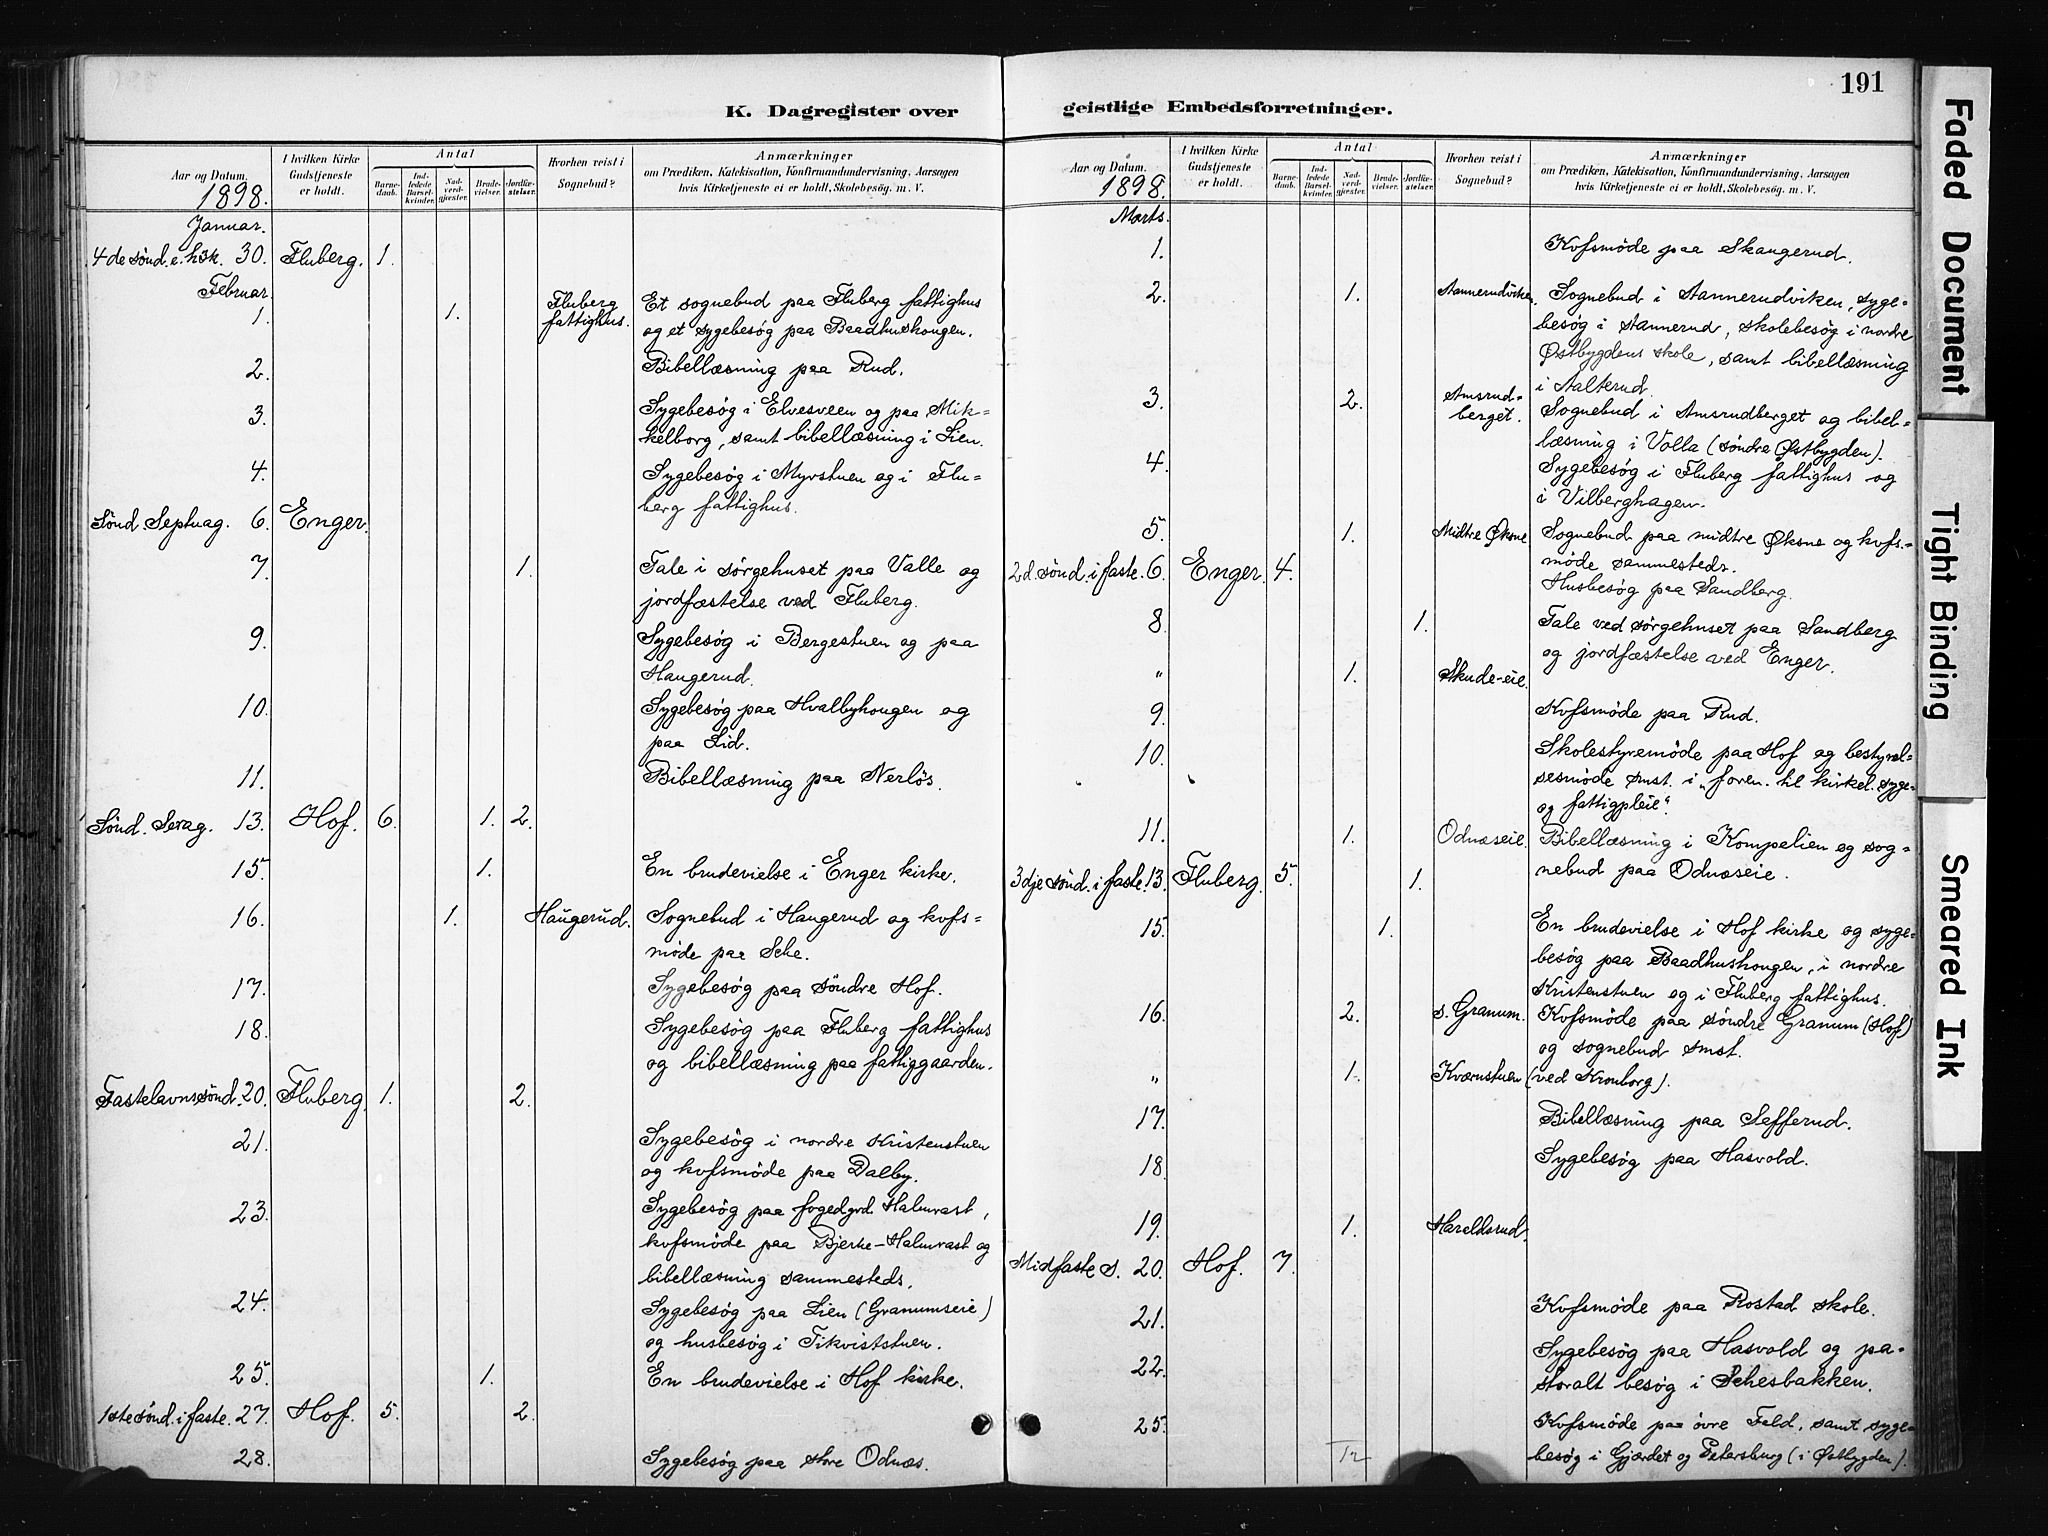 191
K. Dagregister over
geistlige Embedsforretninger.
Aar og Datum.
I hvilken Kirke
Gudstjeneste
er holdt.
Antal
Barne-
daab.
Ind-
ledede
Barsel-
kvinder.
Nad-
verd-
gjæster.
Brude-
vielser.
Jordfæ-
stelser.
Hvorhen reist i
Sognebud?
Anmærkninger
om Prædiken, Katekisation, Konfirmandundervisning, Aarsagen
hvis Kirketjeneste ei er holdt, Skolebesøg. m. V.
1898.
Januar.
4de sönd. e. h3k. 30. Fluberg. 1.
Februar.
1. 1. Fluberg fattighus. Et sognebud paa Fluberg fattighus
og et sygebesög paa Baadhushougen.
2. Bibellæsning paa Rud.
3. Sygebesög i Elvesveen og paa Mik=
kelborg, samt bibellæsning i Lien.
4. Sygebesög i Myrstuen og i Flu=
berg fattighus.
Sönd. Septuag. 6. Enger.
7. 1. Tale i sörgehuset paa Valle og
jordfæstelse ved Fluberg.
9. Sygebesög i Bergestuen og paa
Haugerud.
10. Sygebesög paa Hvalbyhougen og
paa Lid.
11. Bibellæsning paa Nerlös.
Sönd. Sexag. 13. Hof. 6. 1. 2.
15. 1. En brudevielse i Enger kirke.
16. 1. Haugerud. Sognebud i Haugerud og kvfs=
möde paa Sche.
17. Sygebesög paa söndre Hof.
18. Sygebesög paa Fluberg fattighus
og bibellæsning paa fattiggaarden.
Fastelavnssönd. 20. Fluberg. 1. 2.
21. Sygebesög i nordre Kristenstuen
og kvfsmöde paa Dalby.
23. Sygebesög paa fogedgrd. Halmrast,
kvfsmöde paa Bjerke-Halmrast og
bibellæsning sammesteds.
24. Sygebesög paa Lien (Granumseie)
og husbesög i Fikviststuen.
25. 1. En brudevielse i Hof kirke.
1ste sönd. i faste. 27. Hof. 5. 2.
28. Sygebesög paa store Odnæs.
Aar og Datum.
I hvilken Kirke
Gudstjeneste
er holdt.
Antal
Barne-
daab.
Ind-
ledede
Barsel-
kvinder.
Nad-
verd-
gjæster.
Brude-
vielser.
Jordfæ-
stelser.
Hvorhen reist i
Sognebud?
Anmærkninger
om Prædiken, Katekisation, Konfirmandundervisning, Aarsagen
hvis Kirketjeneste ei er holdt, Skolebesøg. m. V.
1898.
Marts.
1. Kvfsmöde paa Skaugerud.
2. 1. Stannerudviken. Sognebud i Stannerudviken, syge=
besög i Stannerud, skolebesög i nordre
Østbygdens skole, samt bibellæsning
i Aalterud.
3. 2. Amsrud=
berget. Sognebud i Amsrudberget og bibel=
læsning i Volla (söndre Østbygden).
4. Sygebesög i Fluberg fattighus og
i Vilberghagen.
5. 1. Midtre Øksne Sognebud paa midtre Øksne og kvfs=
möde sammesteds.
Husbesög paa Sandberg.
2d. sönd. i faste. 6. Enger. 4.
8. 1. Tale ved sörgehuset paa Sandberg
og jordfæstelse ved Enger.
" 1. Skude-eie.
9. Kvfsmöde paa Rud.
10. Skolestyremöde paa Hof og bestyrel=
sesmöde smst. i „foren. til kirkel. syge=
og fattigpleie“
11. 1. Odnæseie. Bibellæsning i Kompelien og sog=
nebud paa Odnæseie.
3dje sönd. i faste. 13. Fluberg. 5. 1.
15. 1. En brudevielse i Hof kirke og syge=
besög paa Baadhushougen, i nordre
Kristenstuen og i Fluberg fattighus.
16. 2. s. Granum. Kvfsmöde paa söndre Granum (Hof)
og sognebud smst.
" 1. Kværnstuen (ved Kronborg).
17. Bibellæsning paa Sefferud.
18. Sygebesög paa Hasvold.
19. 1. Haraldsrud.
Midfaste s. 20. Hof. 7.
21. Kvfsmöde paa Rostad skole.
22. Sygebesög paa Hasvold og pa=
storalt besög i Schesbakken.
25. Kvfsmöde paa övre Fald, samt syge=
besög i Gjærdet og Petersburg (i Østbygden).
Faded Document
Tight Binding
Smeared Ink